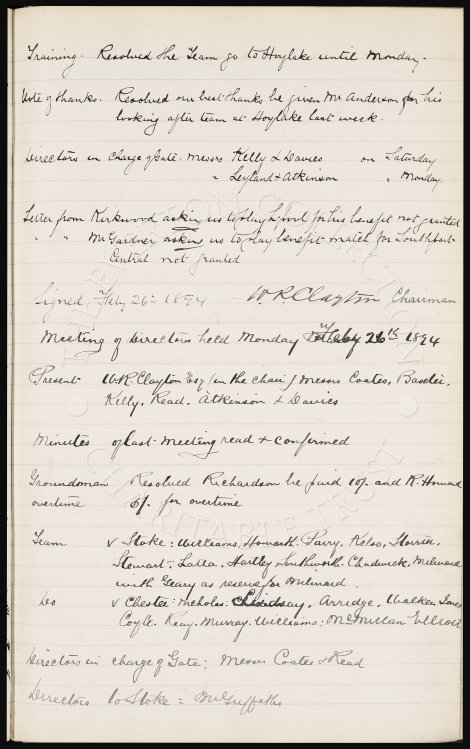 Training. Resolved the Team go to Hoylake until Monday.
Vote of thanks. Resolved our best thanks be given Mr Anderson for his
looking after team at Hoylake last week.
Directors in charge of Gate. Messrs Kelly & Davies on Saturday
" Leyland & Atkinson " Monday.
Letter from Kirkwood asking us to play L'pool for his benefit not granted
" " Mr Gardner asking us to play benefit match for Southport
Central not granted
Signed, Feby 26th 1894 W.R. Clayton Chairman
Meeting of Directors held Monday Feby 26th 1894
Present W.R. Clayton Esq (in the chair) Messrs Coates, Baxter,
Kelly, Read, Atkinson & Davies
Minutes of last meeting read & confirmed
Groundsman Resolved Richardson be paid 10/- and R. Howard
overtime 6/- for overtime
Team v Stoke: Williams, Howarth, Parry, Kelso, Storrier,
Stewart, Latta, Hartley, Southworth, Chadwick, Milward
with Geary as reserve for Milward.
Do v Chester: Nicholas, Lindsay, Arridge, Walker, Jones
Coyle, Reay, Murray, Williams, McMillan, Elliott
Directors in charge of Gate; Messrs Coates & Read
Directors to Stoke = Mr Griffiths
THE EVERTON COLLECTION
CHARITABLE TRUST